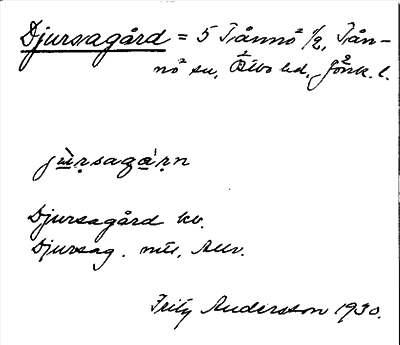 Djursagård = 5 Tånnö 1/2, Tån-
nö sn, Östbo hd, Jönk. l.
jùrsaga̱'rn
Djursagård kv.
Djursag. mtl, Allv.
Frity Andersson 1930.